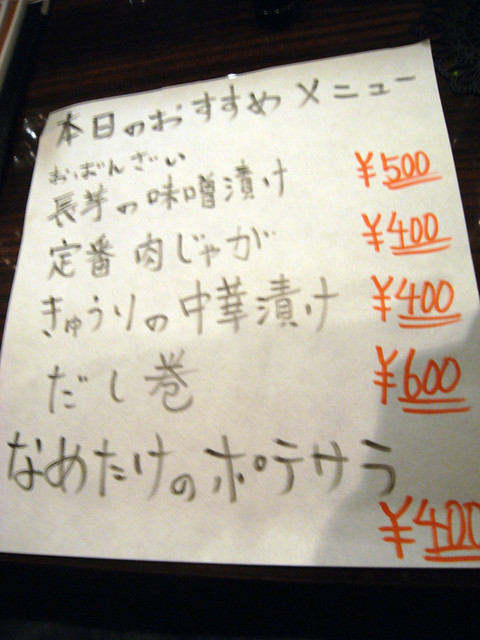 本日のおすすめメニュー
おばんざい
長芋の味噌漬け ¥500
定番 肉じゃが ¥400
きゅうりの中華漬け ¥400
だし巻 ¥600
なめたけのポテサラ
¥400